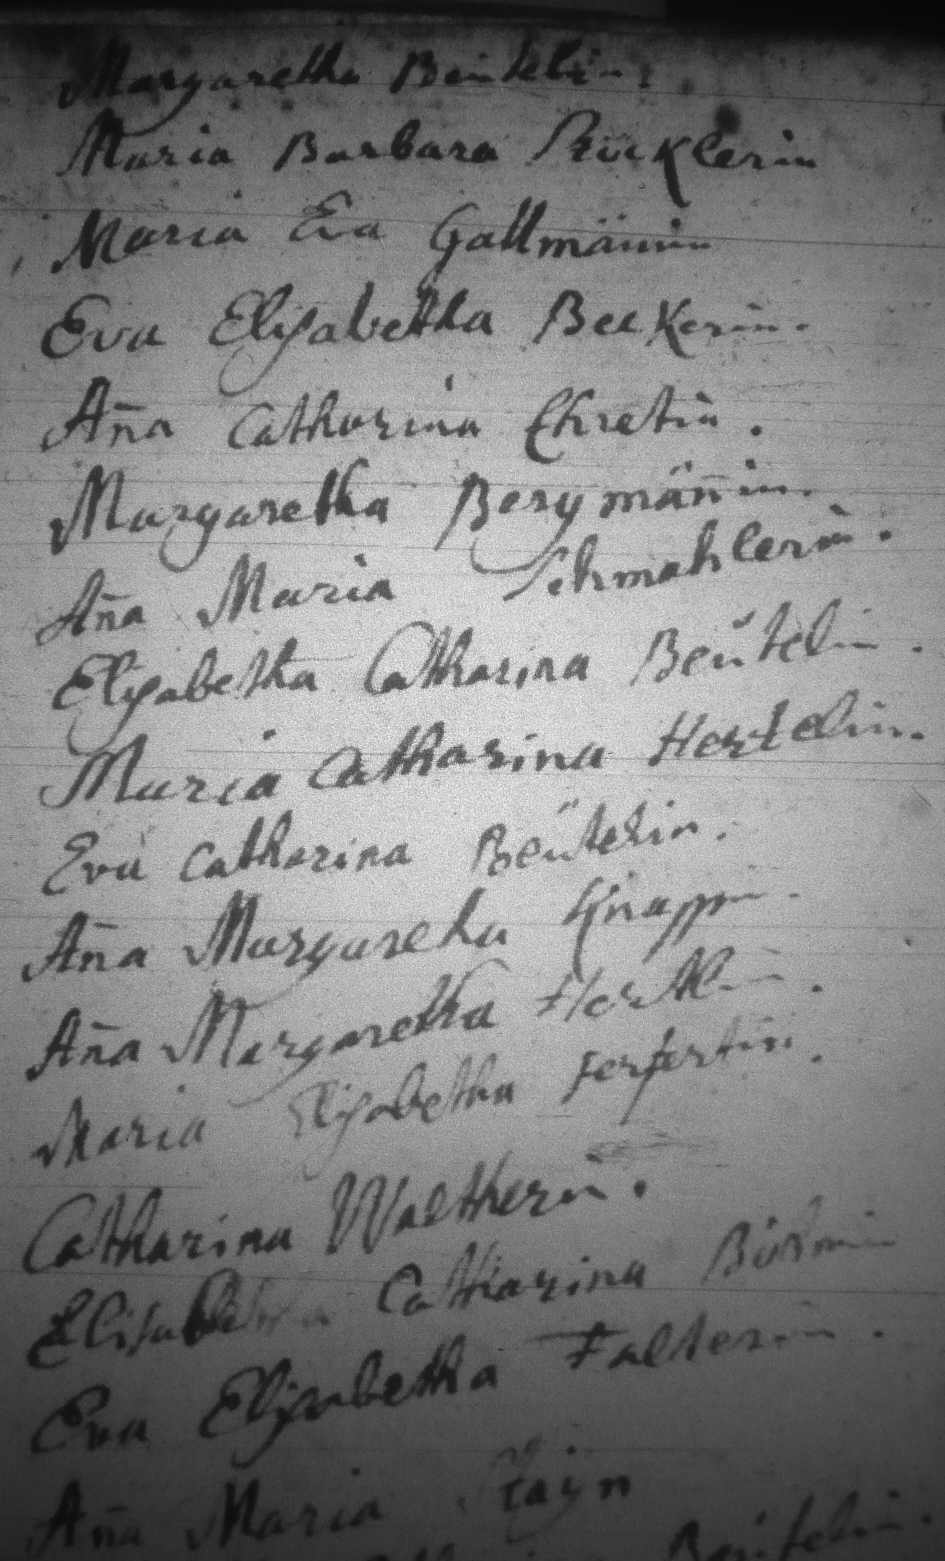 Margaretha Beutelin.
Maria Barbara Brücklerin
Maria Eva Gallmännin
Eva Elisabetha Beckerin.
Aña Catharina Ehretin.
Margaretha Bergmäñin.
Aña Maria Schmahlerin.
Elisabetha Catharina Beütelin.
Maria Catharina Hertelin.
Eva Catharina Beütelin.
Aña Margaretha Knappin.
Aña Margaretha Hertlin.
Maria Elisabetha
Catharina Waltherin.
Elisabetha Catharina Böhmin
Eva Elisabetha Falterin.
Aña Maria
Beütelin.